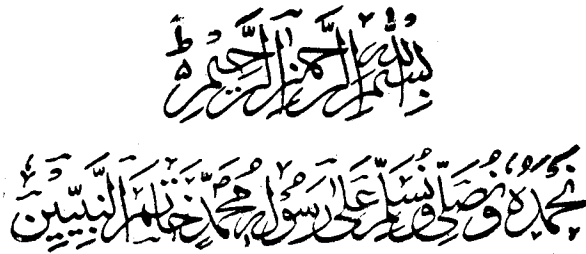 بِسْمِ اللهِ الرَّحْمٰنِ الرَّحِيْمِ ۵ؕ
نَحْمَدُهٗ وَنُصَلِّيْ وَنُسَلِّمُ عَلٰى رَسُوْلِهٖ مُحَمَّدٍ خَاتَمِ النَّبِيِّيْنَ